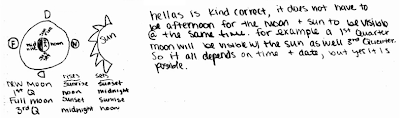 D
F
N
noon
Sun
rises sets
New Moon Sunrise Sunset
1st Q noon midnight
Full moon Sunset Sunrise
3rd Q midnight noon
hellas is kind correct, it does not have to
be afternoon for the moon + sun to be visible
@ the same time. for example a 1st Quarter
moon will be visible w/ the sun as well 3rd Quarter.
So it all depends on time + date, but yes it is
posible.